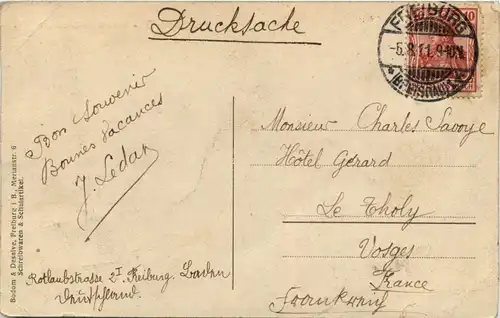 Drucksache
FREIBURG
-5.8.11.9-10V.
*(BREISGAU)*
10
Bon Souvenir
Bonnes Vacances
J. Ledan
Monsieur Charles Savoye
Hôtel Gérard
Le Tholy
Vosges
France
Frankreich
Rotlaubstrasse 2I Freiburg. Baden
Deutschland.
Bodom & Dessive, Freiburg i B., Merianstr. 6
Schreibwaren & Schulartikel.